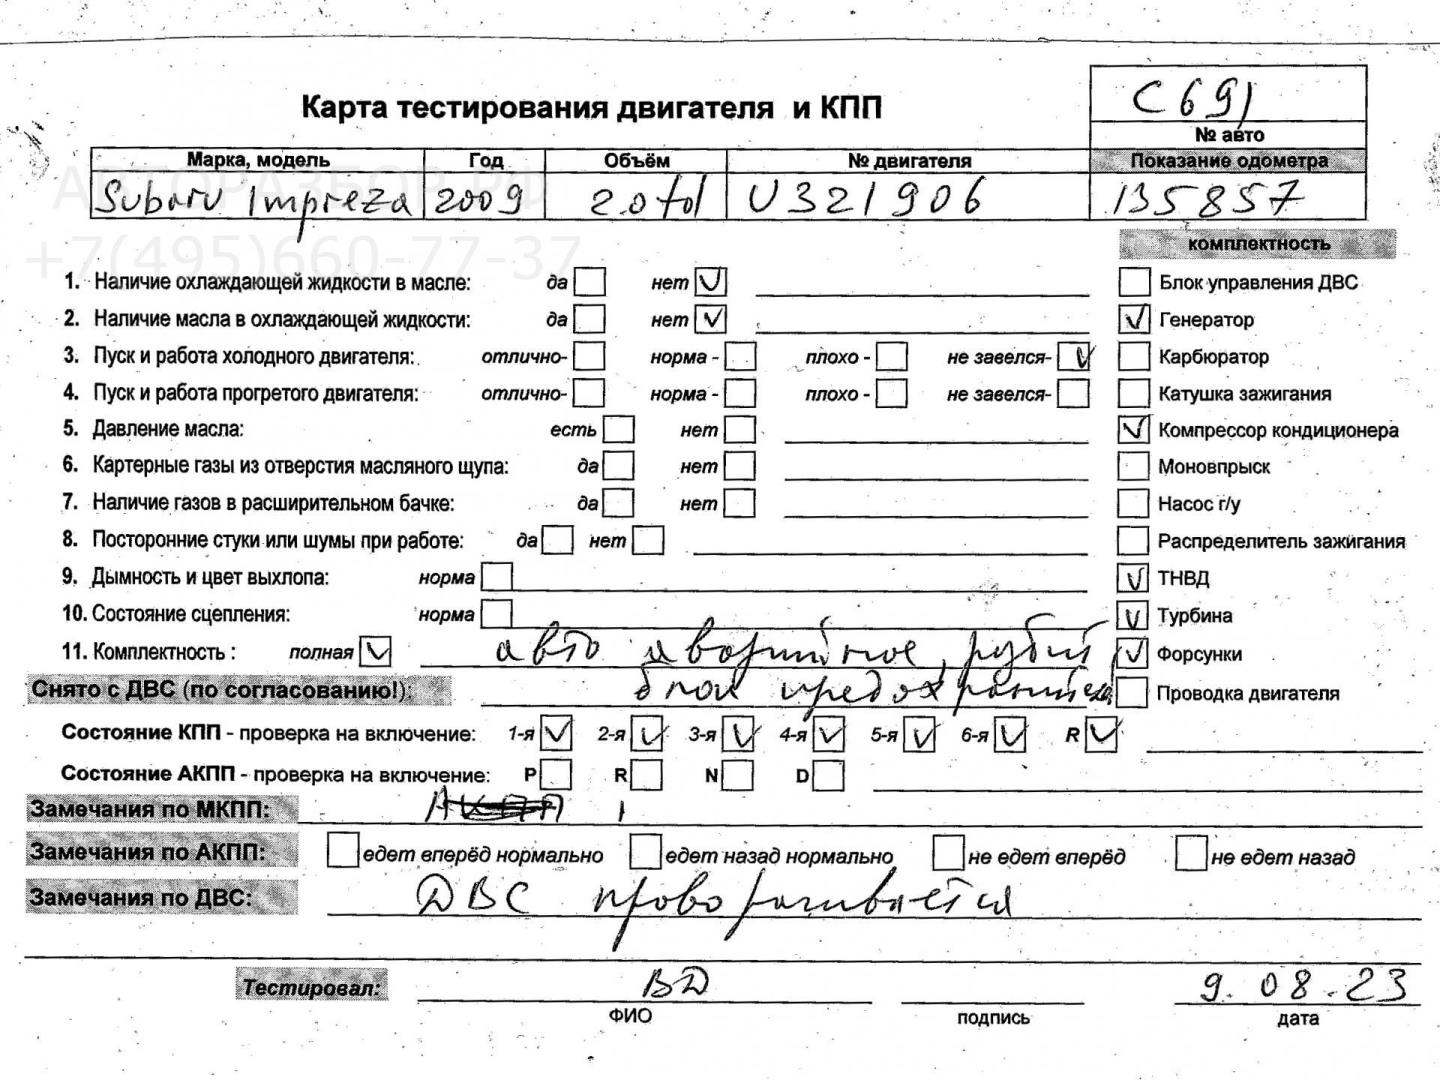 С691
Карта тестирования двигателя и КПП
№ авто
Марка, модель Год Объём № двигателя Показание одометра
АВТОРАЗБОР.РФ
Subaru Impreza 2009 2.0 td U321906 135857
+7(495)660-77-37
комплектность
1. Наличие охлаждающей жидкости в масле: да нет ✓ Блок управления ДВС
2. Наличие масла в охлаждающей жидкости: да нет ✓ ✓ Генератор
3. Пуск и работа холодного двигателя: отлично- норма - плохо - не завелся- ✓ Карбюратор
4. Пуск и работа прогретого двигателя: отлично- норма - плохо - не завелся- Катушка зажигания
5. Давление масла: есть нет ✓ Компрессор кондиционера
6. Картерные газы из отверстия масляного щупа: да нет Моновпрыск
7. Наличие газов в расширительном бачке: да нет Насос г/у
8. Посторонние стуки или шумы при работе: да нет Распределитель зажигания
9. Дымность и цвет выхлопа: норма ✓ ТНВД
10. Состояние сцепления: норма ✓ Турбина
11. Комплектность : полная ✓ авто аварийное, ✓ Форсунки
Снято с ДВС (по согласованию!): блок Проводка двигателя
Состояние КПП - проверка на включение: 1-я ✓ 2-я ✓ 3-я ✓ 4-я ✓ 5-я ✓ 6-я ✓ R ✓
Состояние АКПП - проверка на включение: P R N D
Замечания по МКПП:
Замечания по АКПП: едет вперёд нормально едет назад нормально не едет вперёд не едет назад
Замечания по ДВС: ДВС проворачивается
Тестировал: ВД 9.08.23
ФИО подпись дата